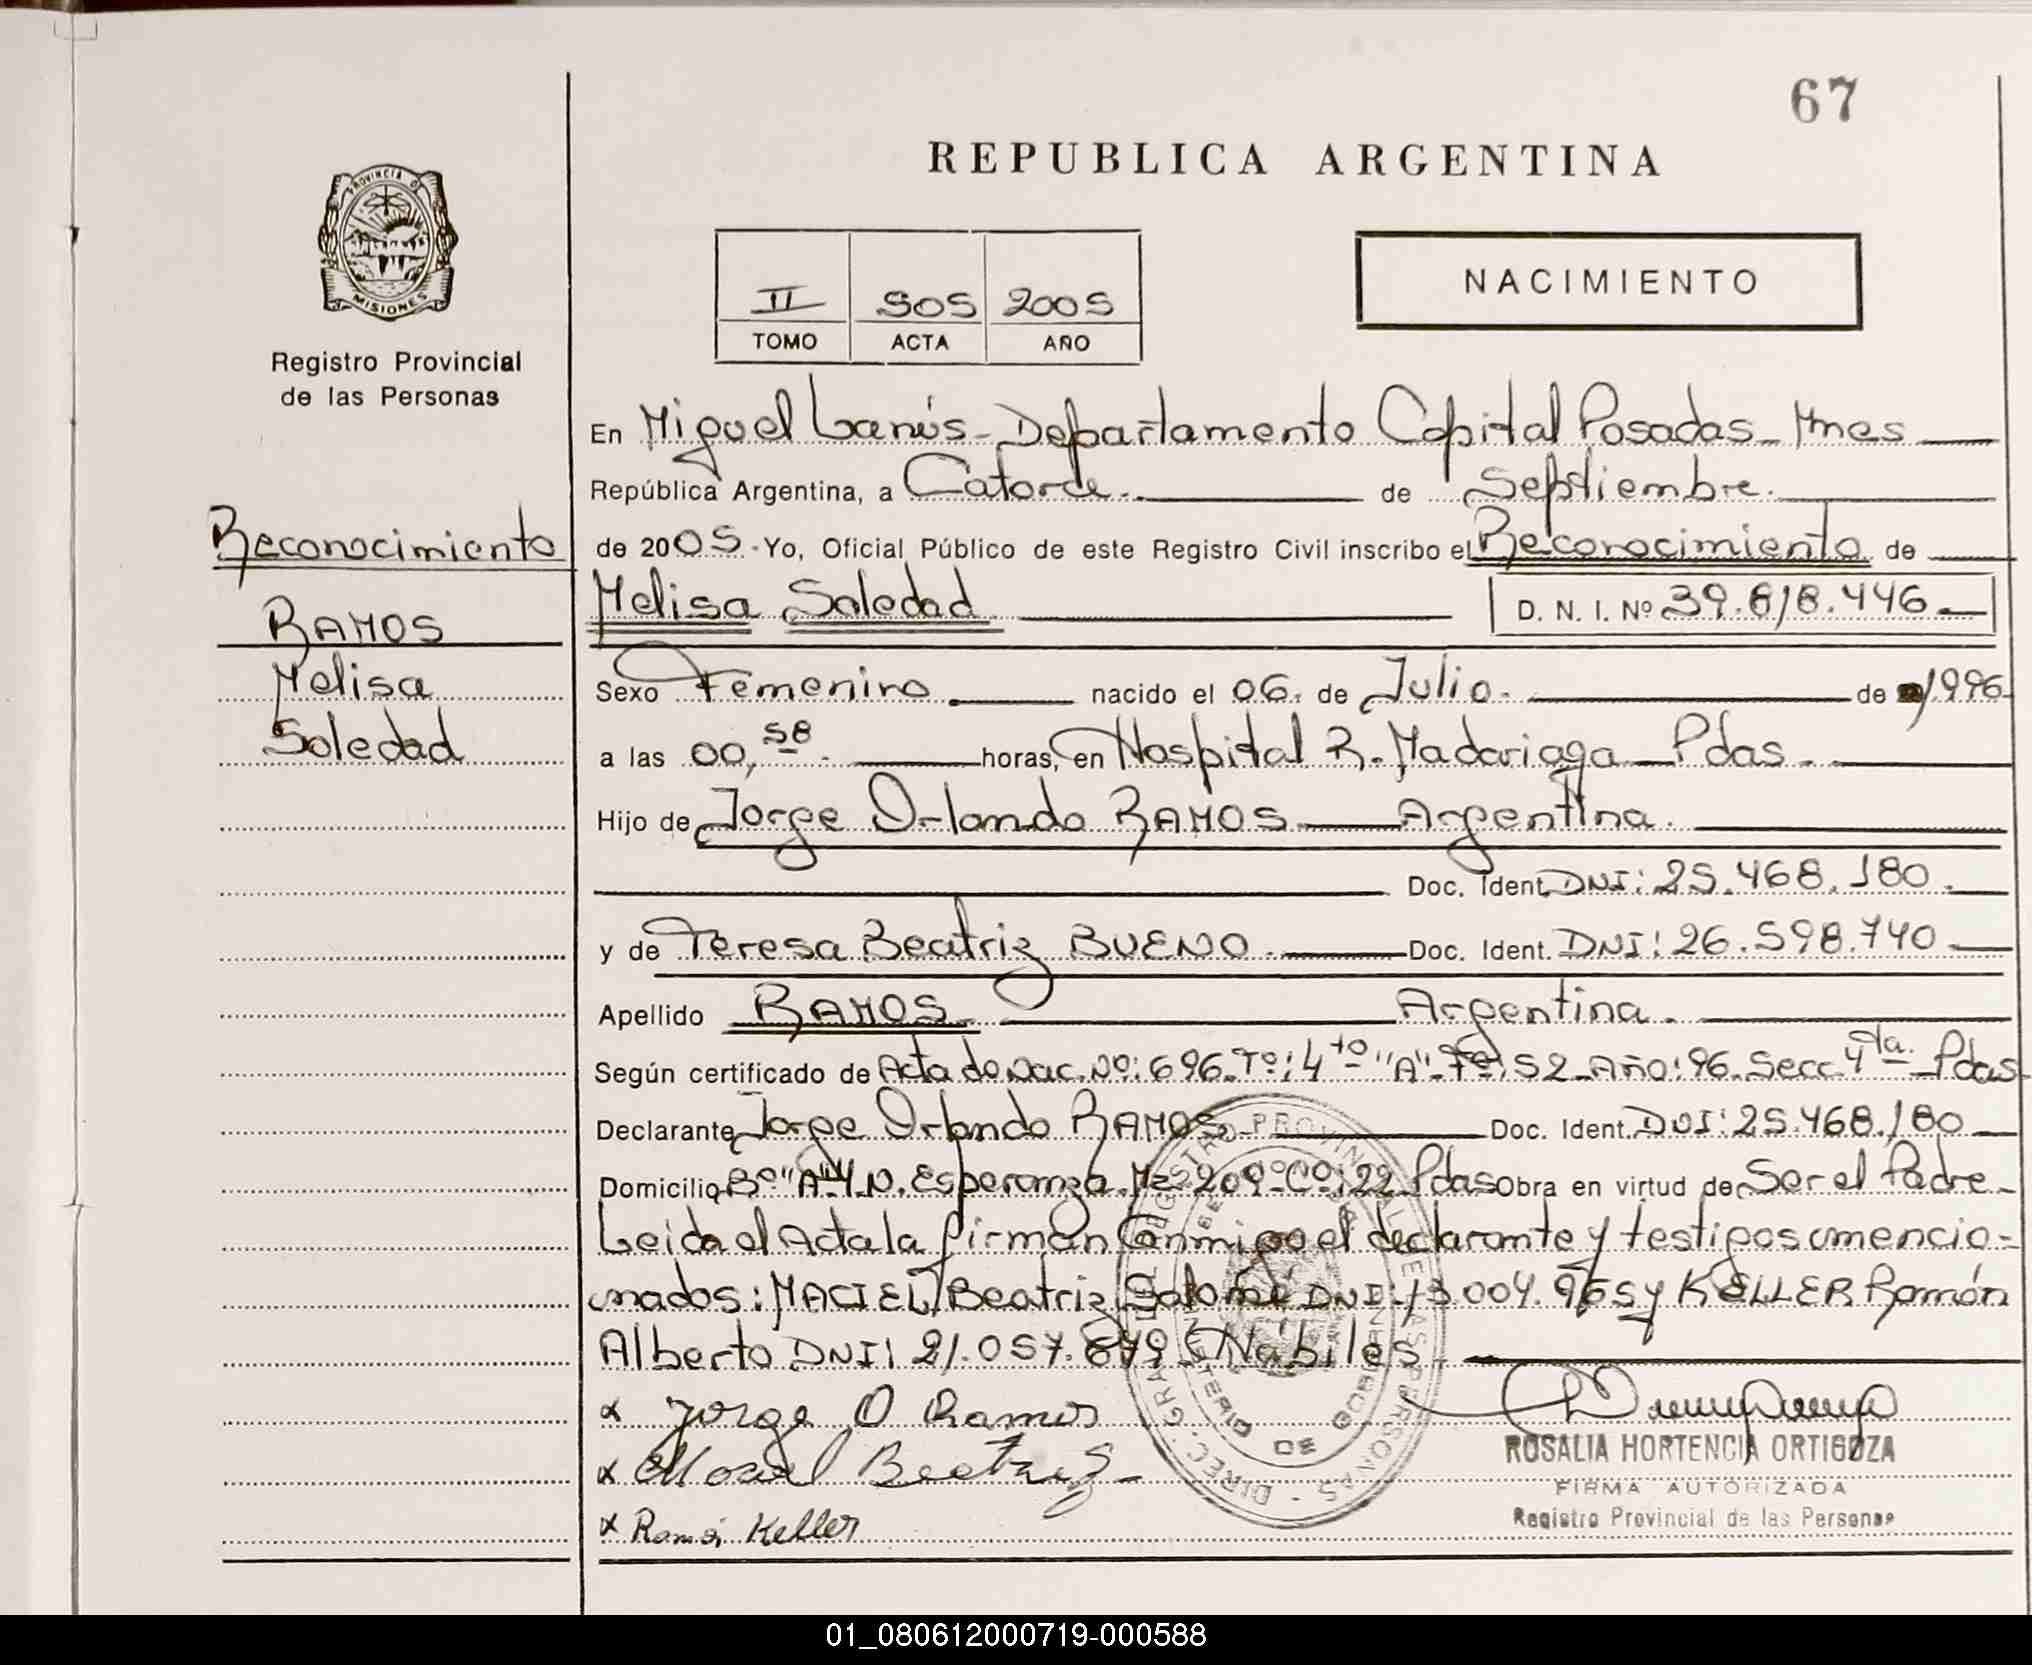 67
REPUBLICA ARGENTINA
PROVINCIA DE
MISIONES
Registro Provincial
de las Personas
II 505 2005
TOMO ACTA AÑO
NACIMIENTO
En Miguel Lanús - Departamento Capital Posadas - Mnes
República Argentina, a Catorce. de Septiembre.
Reconocimiento
de 2005.-Yo, Oficial Público de este Registro Civil inscribo el Reconocimiento de
RAMOS
Melisa Soledad D. N. I. Nº 39.818.446
Melisa
Sexo Femenino nacido el 06. de Julio. de 1996
Soledad
a las 00,58 horas, en Hospital R. Madariaga - Pdas.
Hijo de Jorge Orlando RAMOS Argentina.
Doc. Ident. DNI: 25.468.180.
y de Teresa Beatriz BUENO. Doc. Ident. DNI: 26.598.740
Apellido RAMOS Argentina.
Según certificado de Acta de Nac. Nº: 696 - Tº: 4to "A" - Fº: 52 - Año: 96. Secc. 4ta. Pdas
Declarante Jorge Orlando RAMOS Doc. Ident. DNI: 25.468.180
Domicilio Bº "A" Esperanza. Mz 209 - Cº: 22 Pdas Obra en virtud de Ser el Padre -
Leida el Acta la firman Conmigo el declarante y testigos mencio-
nados: MACIEL, Beatriz Salomé DNI: 13.004.965 y KELLER Ramón
Alberto DNI: 21.057.879 Hábiles
x Jorge O Ramos
x Maciel Beatriz
x Ramón Keller
ROSALIA HORTENCIA ORTIGOZA
FIRMA AUTORIZADA
Registro Provincial de las Personas
01_080612000719-000588